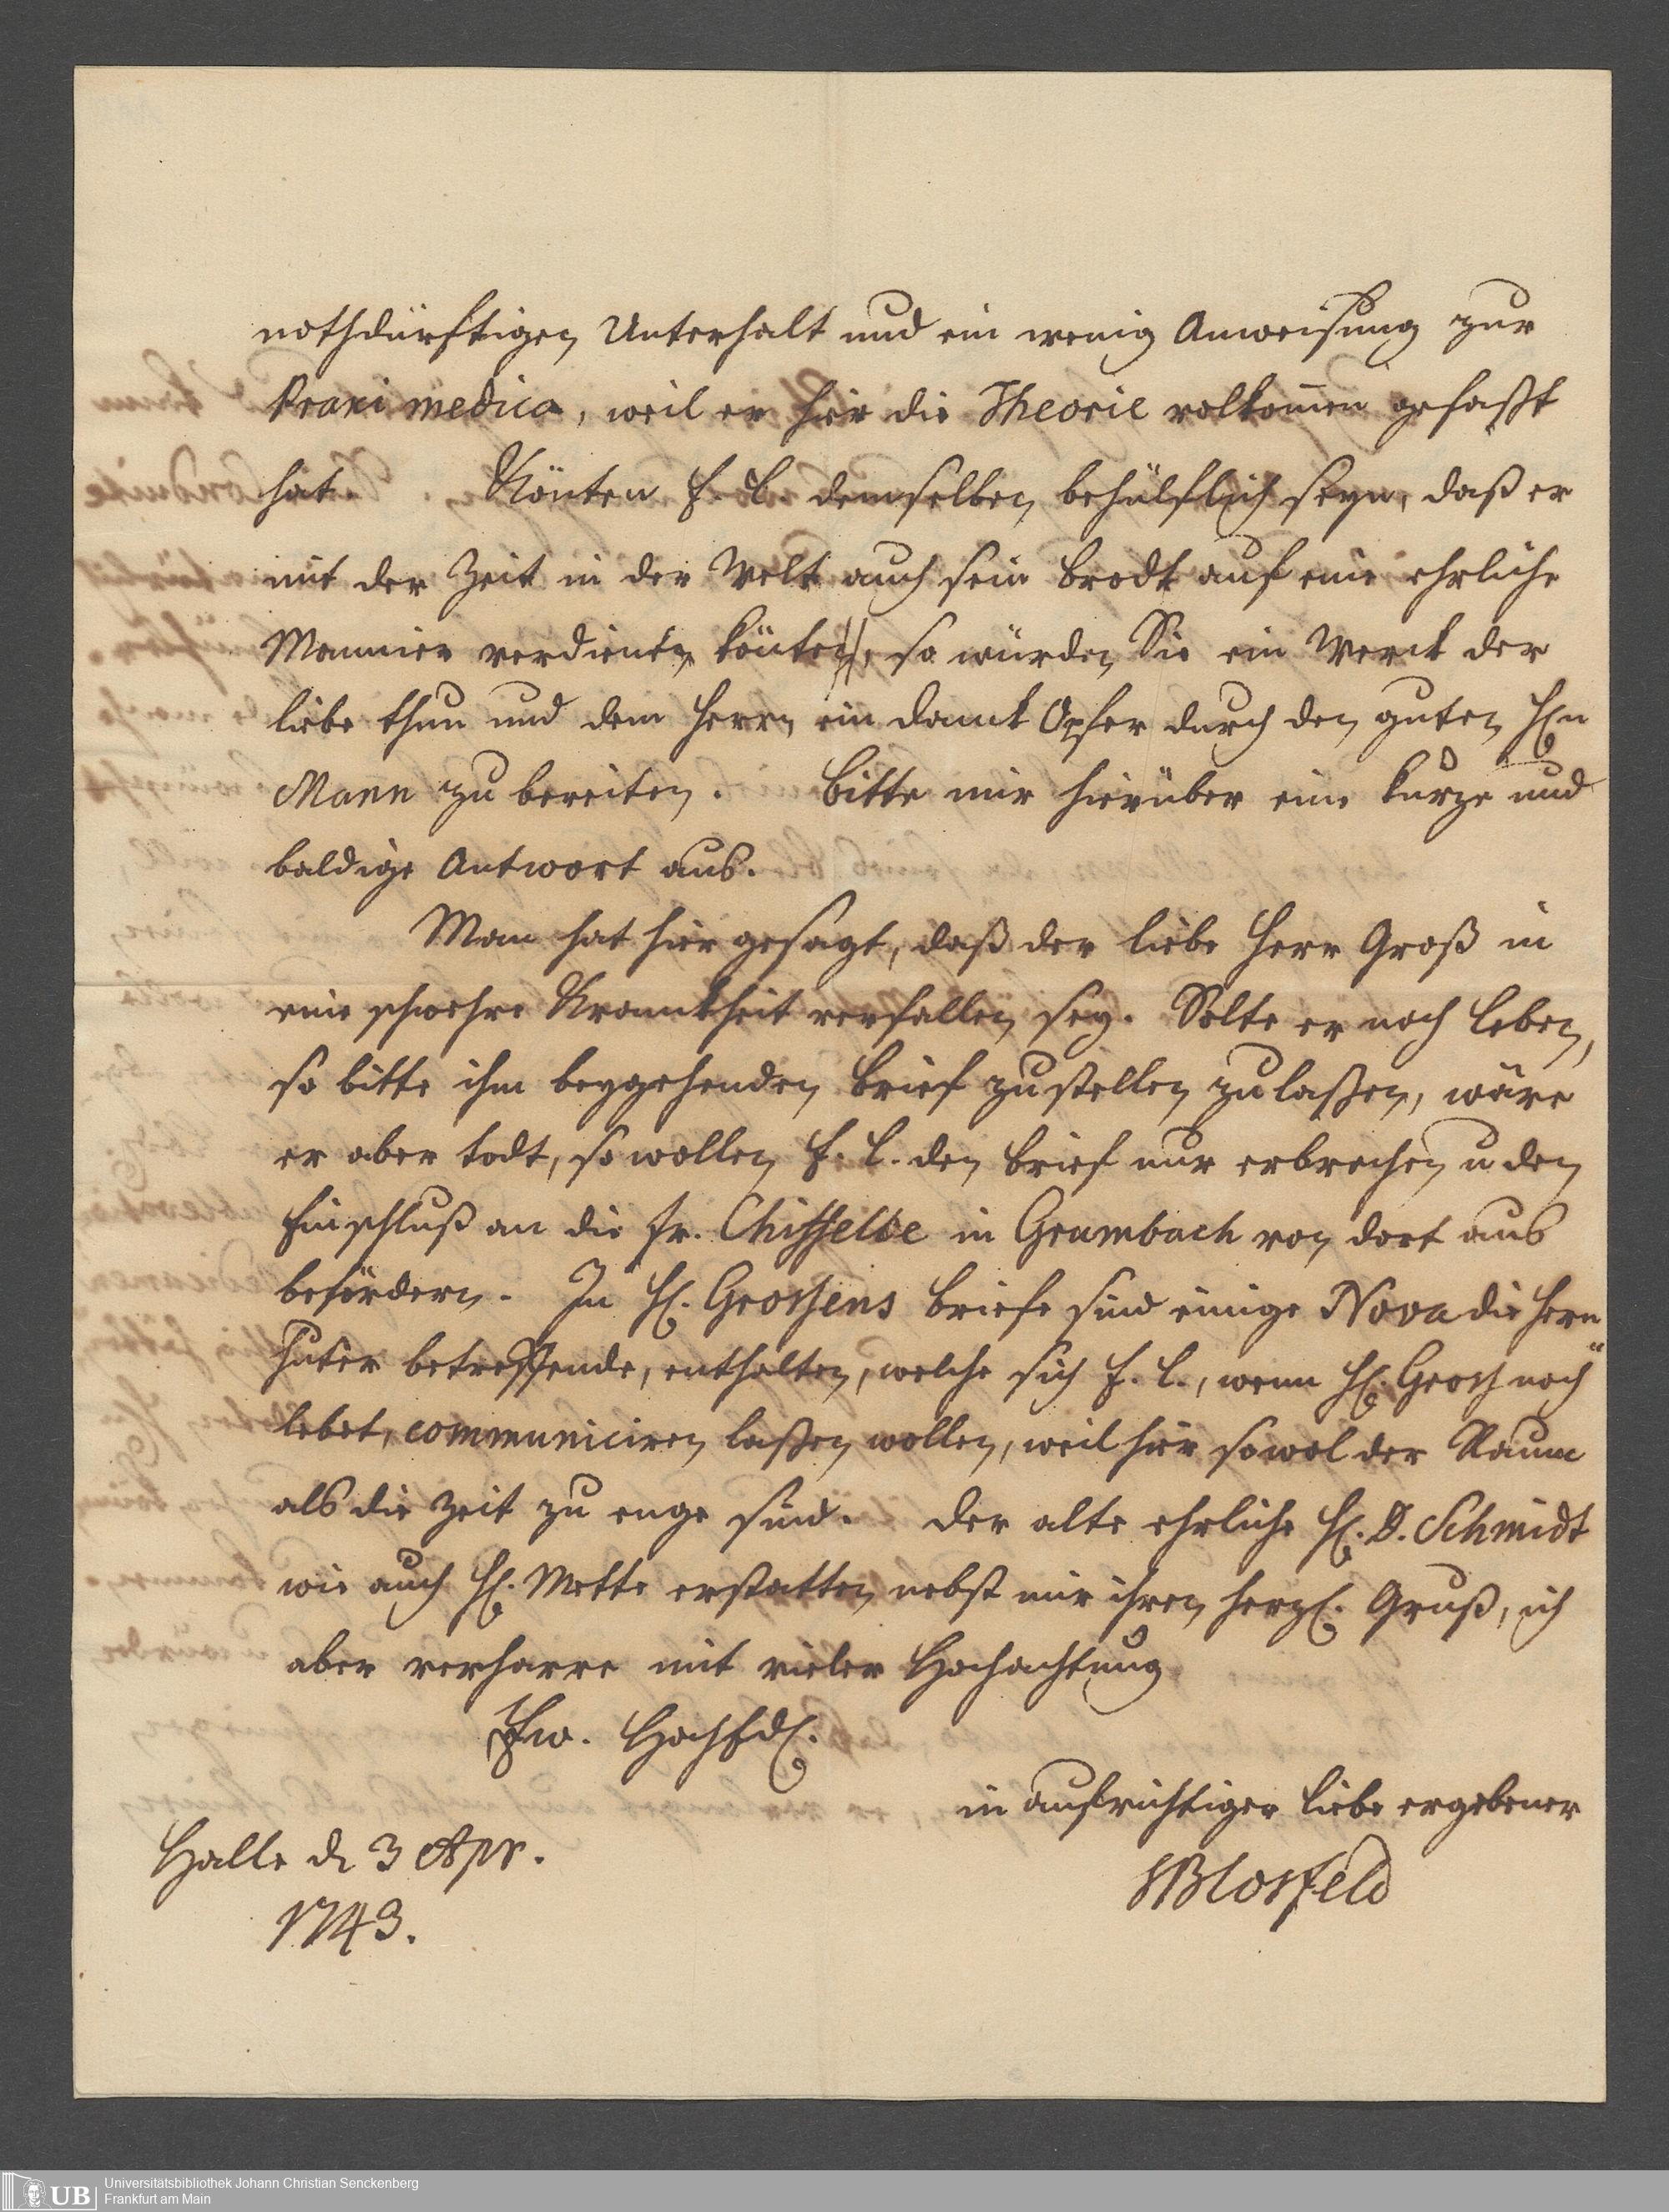 nothdürftigen Unterhalt und ein wenig Anweisung zur
Praxi medica, weil er hir die Theorie volkom̄en gefaßt
hat. Könten E. L. demselben behülflich seyn, daß er
mit der Zeit in der Welt auch sein Brodt auf eine ehrliche
Mannier verdienen könte, so würden Sie ein Werck der
Liebe thun und dem Herrn ein Danck Opfer durch den guten H.n
Mann zu bereiten. Bitte mir hierüber eine kurze und
baldige Antwort aus.
Man hat hier gesagt, daß der liebe Herr Groß in
eine schwehre Kranckheit verfallen sey. Solte er noch leben,
so bitte ihm beygehenden Brief zustellen zu laßen, wäre
er aber todt, so wollen E. L. den Brief nur erbrechen u den
Einschluß an die Fr. in Grumbach von dort aus
befördern. In H. Grossens Briefe sind einige Nova die Hern
huter betreffende, enthalten, welche sich E. L., wenn H. Gross noch
lebet, communiciren laßen wollen, weil hier sowol der Raum
als die Zeit zu enge sind. Der alte ehrliche H. D. Schmidt
wie auch H. Mette erstatten nebst mir ihren herzl. Gruß, ich
aber verharre mit vieler Hochachtung
Ew. HochEdl.
in aufrichtiger Liebe ergebener
Halle d. 3 Apr.
SBlosfeld
1743.
UB
Universitätsbibliothek Johann Christian Senckenberg
Frankfurt am Main